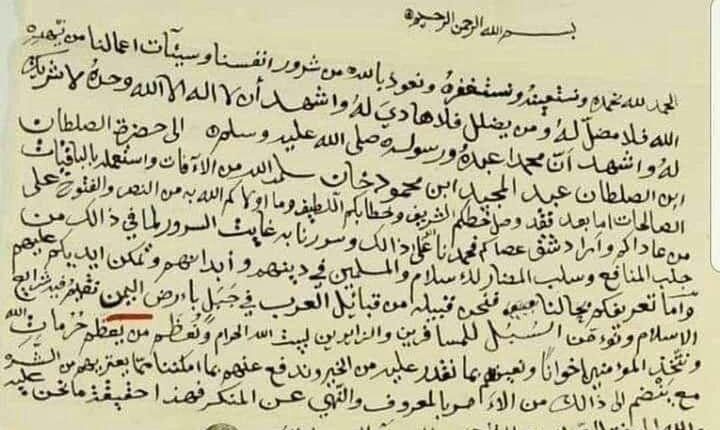 بسم الله الرحمن الرحيم
الحمد لله نحمده ونستعينه ونستغفره ونعوذ بالله من شرور انفسنا وسيئآت اعمالنا من يهده
الله فلا مضل له ومن يضلل فلا هادي له واشهد أن لا اله الا الله وحده لا شريك
له واشهد أن محمدا عبده ورسوله صلى الله عليه وسلم الى حضرة الصلطان
ابن الصلطان عبد المجيد ابن محمود خان سلمه الله من الآفات واستعمله بالباقيات
الصالحات اما بعد فقد وصل خطكم الشريف وخطابكم اللطيف وما اولاكم الله به من النصر والفتوح على
من عاداكم وأراد شق عصاكم فحمدنا الله على ذالك وسررنا به غايت السرور لما في ذالك من
جلب المنافع وسلب المضار للاسلام والمسلمين في دينهم وأبدانهم وتمكن ايديكم عليهم
وأما تعريفكم بحالنا فنحن قبيله من قبائل العرب في جبل بارض اليمن فيه شرايع
الاسلام ونؤمن السبل للمسافرين والزايرين لبيت الله الحرام ونعظم من يعظم حرمات الله
ونتخذ المؤمنين إخوانا ونعينهم بما نقدر عليه من الخير وندفع عنهم بما امكننا مما يعتريهم من الشر
مع ينضم الى ذالك من الأمر بالمعروف والنهي عن المنكر فهذا حقيقة ما نحن عليه